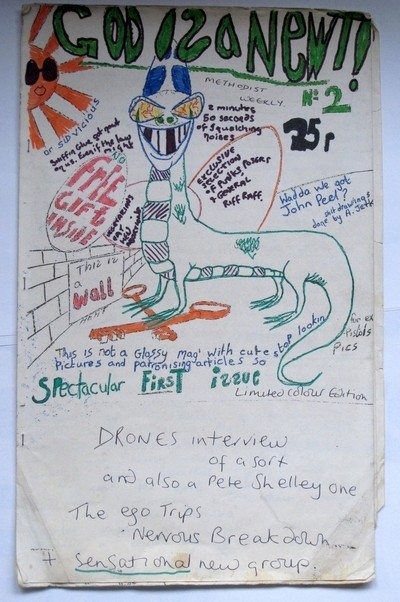 GOD IS A NEWT!
METHODIST
WEEKLY.
No: 2
25p
2 minutes
50 seconds
of squelching
noises
or SID VICIOUS
NO
FREE
GIFT
INSIDE
EXCLUSIVE
SELECTION
OF PUNKS, POSERS
+ GENERAL
RIFF RAFF.
Wadda we got
John Peel?
shit drawings
done by A. Jette
This is
a
wall
This is not a Glossy mag' with cute
Pictures and patronising articles so
stop lookin
for ex
Pistols
Pics
Spectacular FIRST issue
Limited colour Edition
DRONES interview
of a sort
and also a Pete Shelley one
The ego Trips
Nervous Breakdown
+ sensational new group.